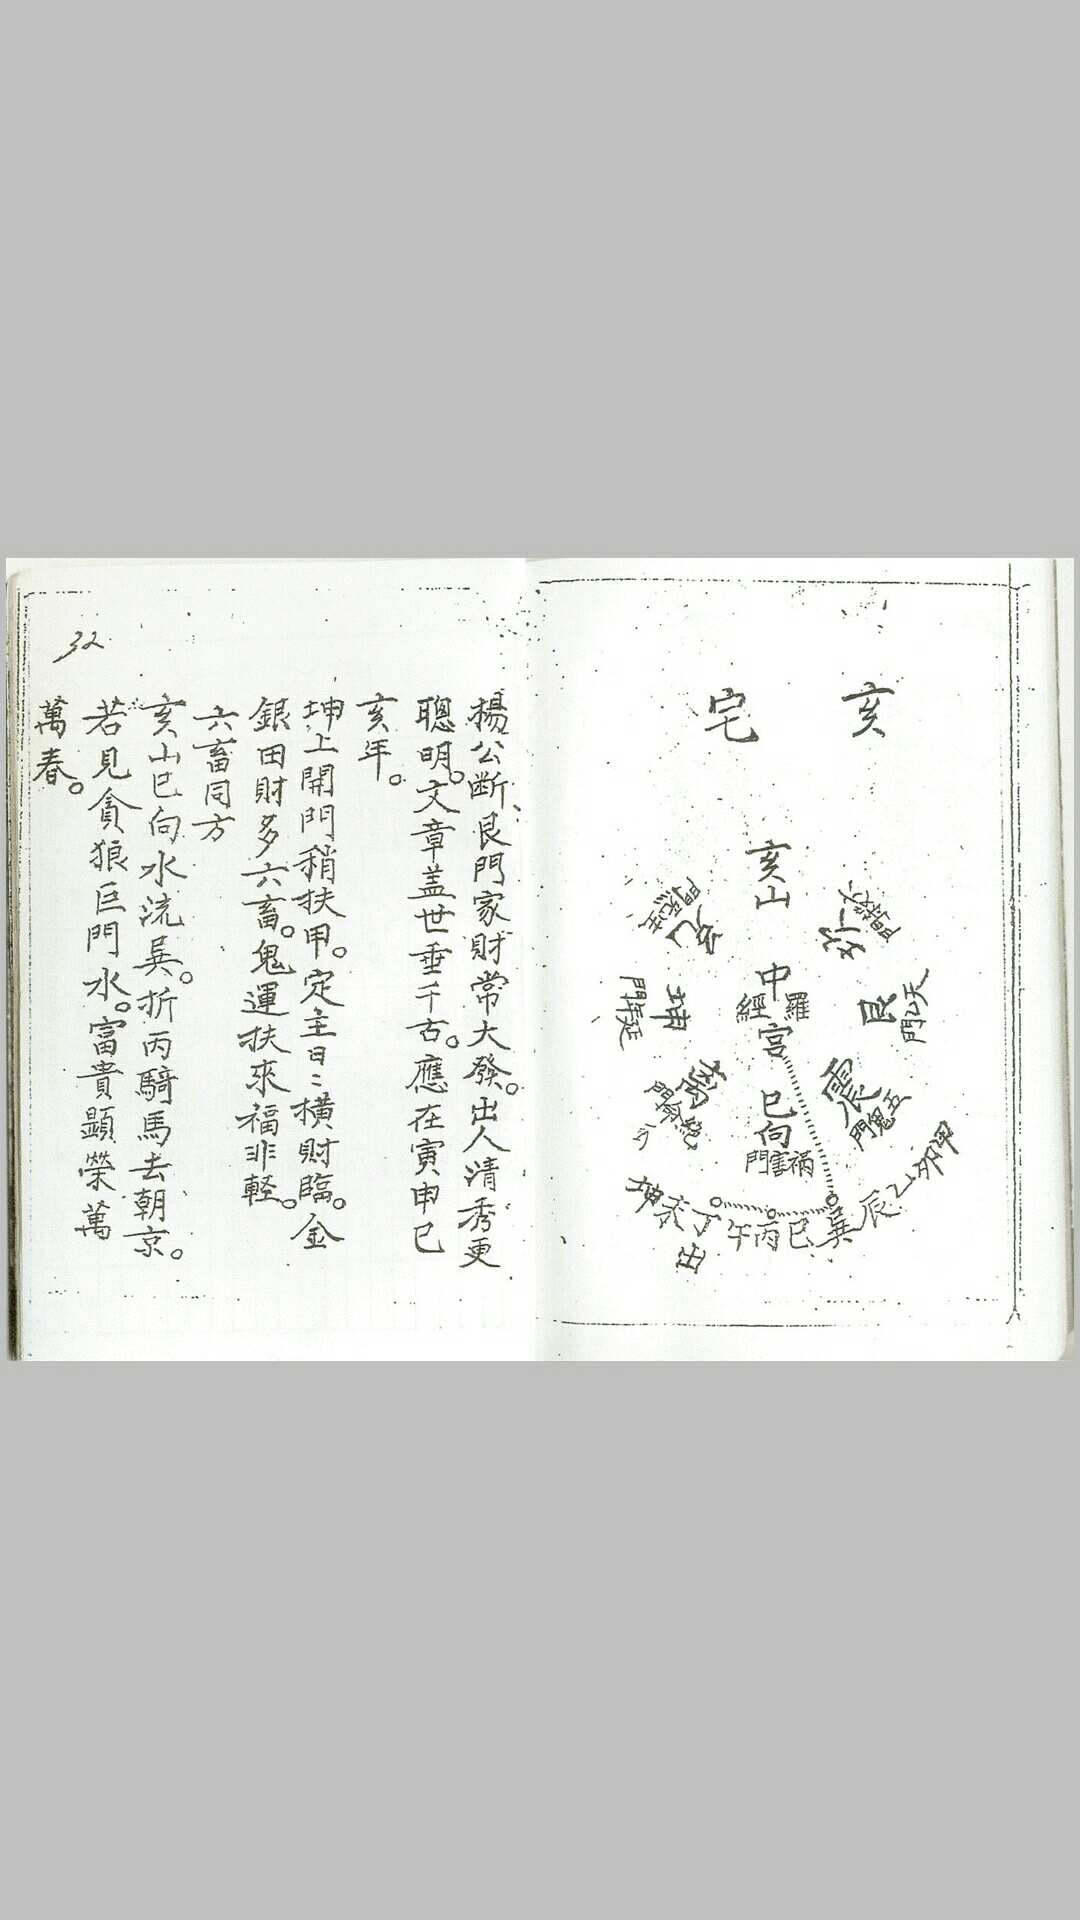 亥宅
亥山
中宮
羅經
巳向
禍害門
坎
六煞門
艮
天乙門
震
五鬼門
兌
生氣門
坤
延年門
離
絕命門
甲卯乙辰巽巳丙午丁未坤
出
楊公斷、艮門家財常大發。出人清秀更
聰明。文章盖世垂千古。應在寅申巳
亥年。
坤上開門稍扶甲。定主日〻橫財臨。金
銀田財多六畜。鬼運扶來福非軽。
六畜同方
亥山巳向水流巽。折丙騎馬去朝京。
若見貪狼巨門水。富貴顯榮萬
萬春。
32